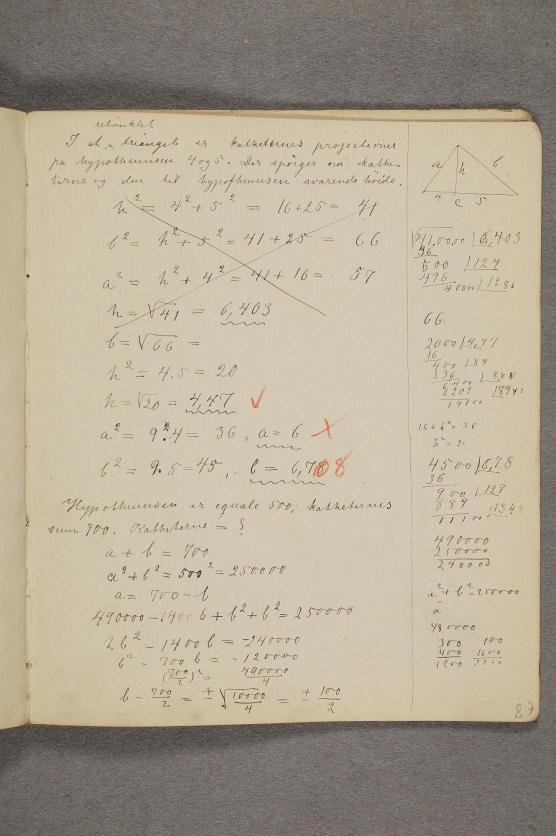 retvinklet
I et triangel er katheternes projectioner
på hypothenusen 4 og 5. Der spörges om kathe-
terne og den til hypothenusen svarende höide.
h² = 4² + 5² = 16+25 = 41
b² = h² + 5² = 41 + 25 = 66
a² = h² + 4² = 41 + 16 = 57
h = √41 = 6,403
b = √66 =
h² = 4.5 = 20
h = √20 = 4,47
a² = 9.4 = 36, a = 6
b² = 9.5 = 45, b = 6,708
Hypothenusen er equale 500; katheternes
sum 700. Katheterne = ?
a + b = 700
a² + b² = 500² = 250000
a = 700 - b
490000 - 1400 b + b² + b² = 250000
2b² - 1400 b = -240000
b² - 700 b = -120000
(700/2)² = 490000/4
b - 700/2 = ± √10000/4 = ± 100/2
a h b
4 c 5
√41,0000 | 6,403
36
500 | 124
496
40000 | 1280
66
2000 | 4,47
16
400 | 84
336
6400 | 884
6209
19100
16 + b² = 36
b² = 20
4500 | 6,78
36
900 | 127
889
11100 | 1348
490000
250000
240000
a² + b² = 250000
a
480000
300 100
400 1600
1200
87